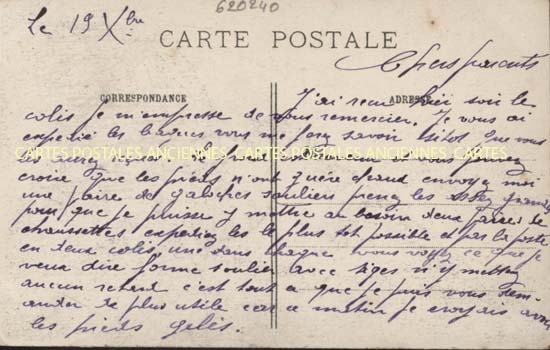 620240
Le 19 Xbre
CARTE POSTALE
Chers parents
CORRESPONDANCE
ADRESSE
J'ai reçu hier soir le
colis je m'empresse de vous remercier. Je vous ai
expédié les bagues vous me ferez savoir sitôt que vous
CARTES POSTALES ANCIENNES CARTES POSTALES ANCIENNES CARTES POSTALES ANCIENNES
les
croire que les pieds n'ont guère chaud envoyez moi
une paire de galoches souliers prenez les assez grands
pour que je puisse y mettre au besoin deux paires de
chaussettes expédiez les le plus tôt possible et par la poste
en deux colis une dans chaque vous voyez ce que je
veux dire forme soulier avec tiges n'y mettez
aucun retard c'est tout ce que je puis vous dem-
ander de plus utile car ce matin je croyais avoir
les pieds gelés.